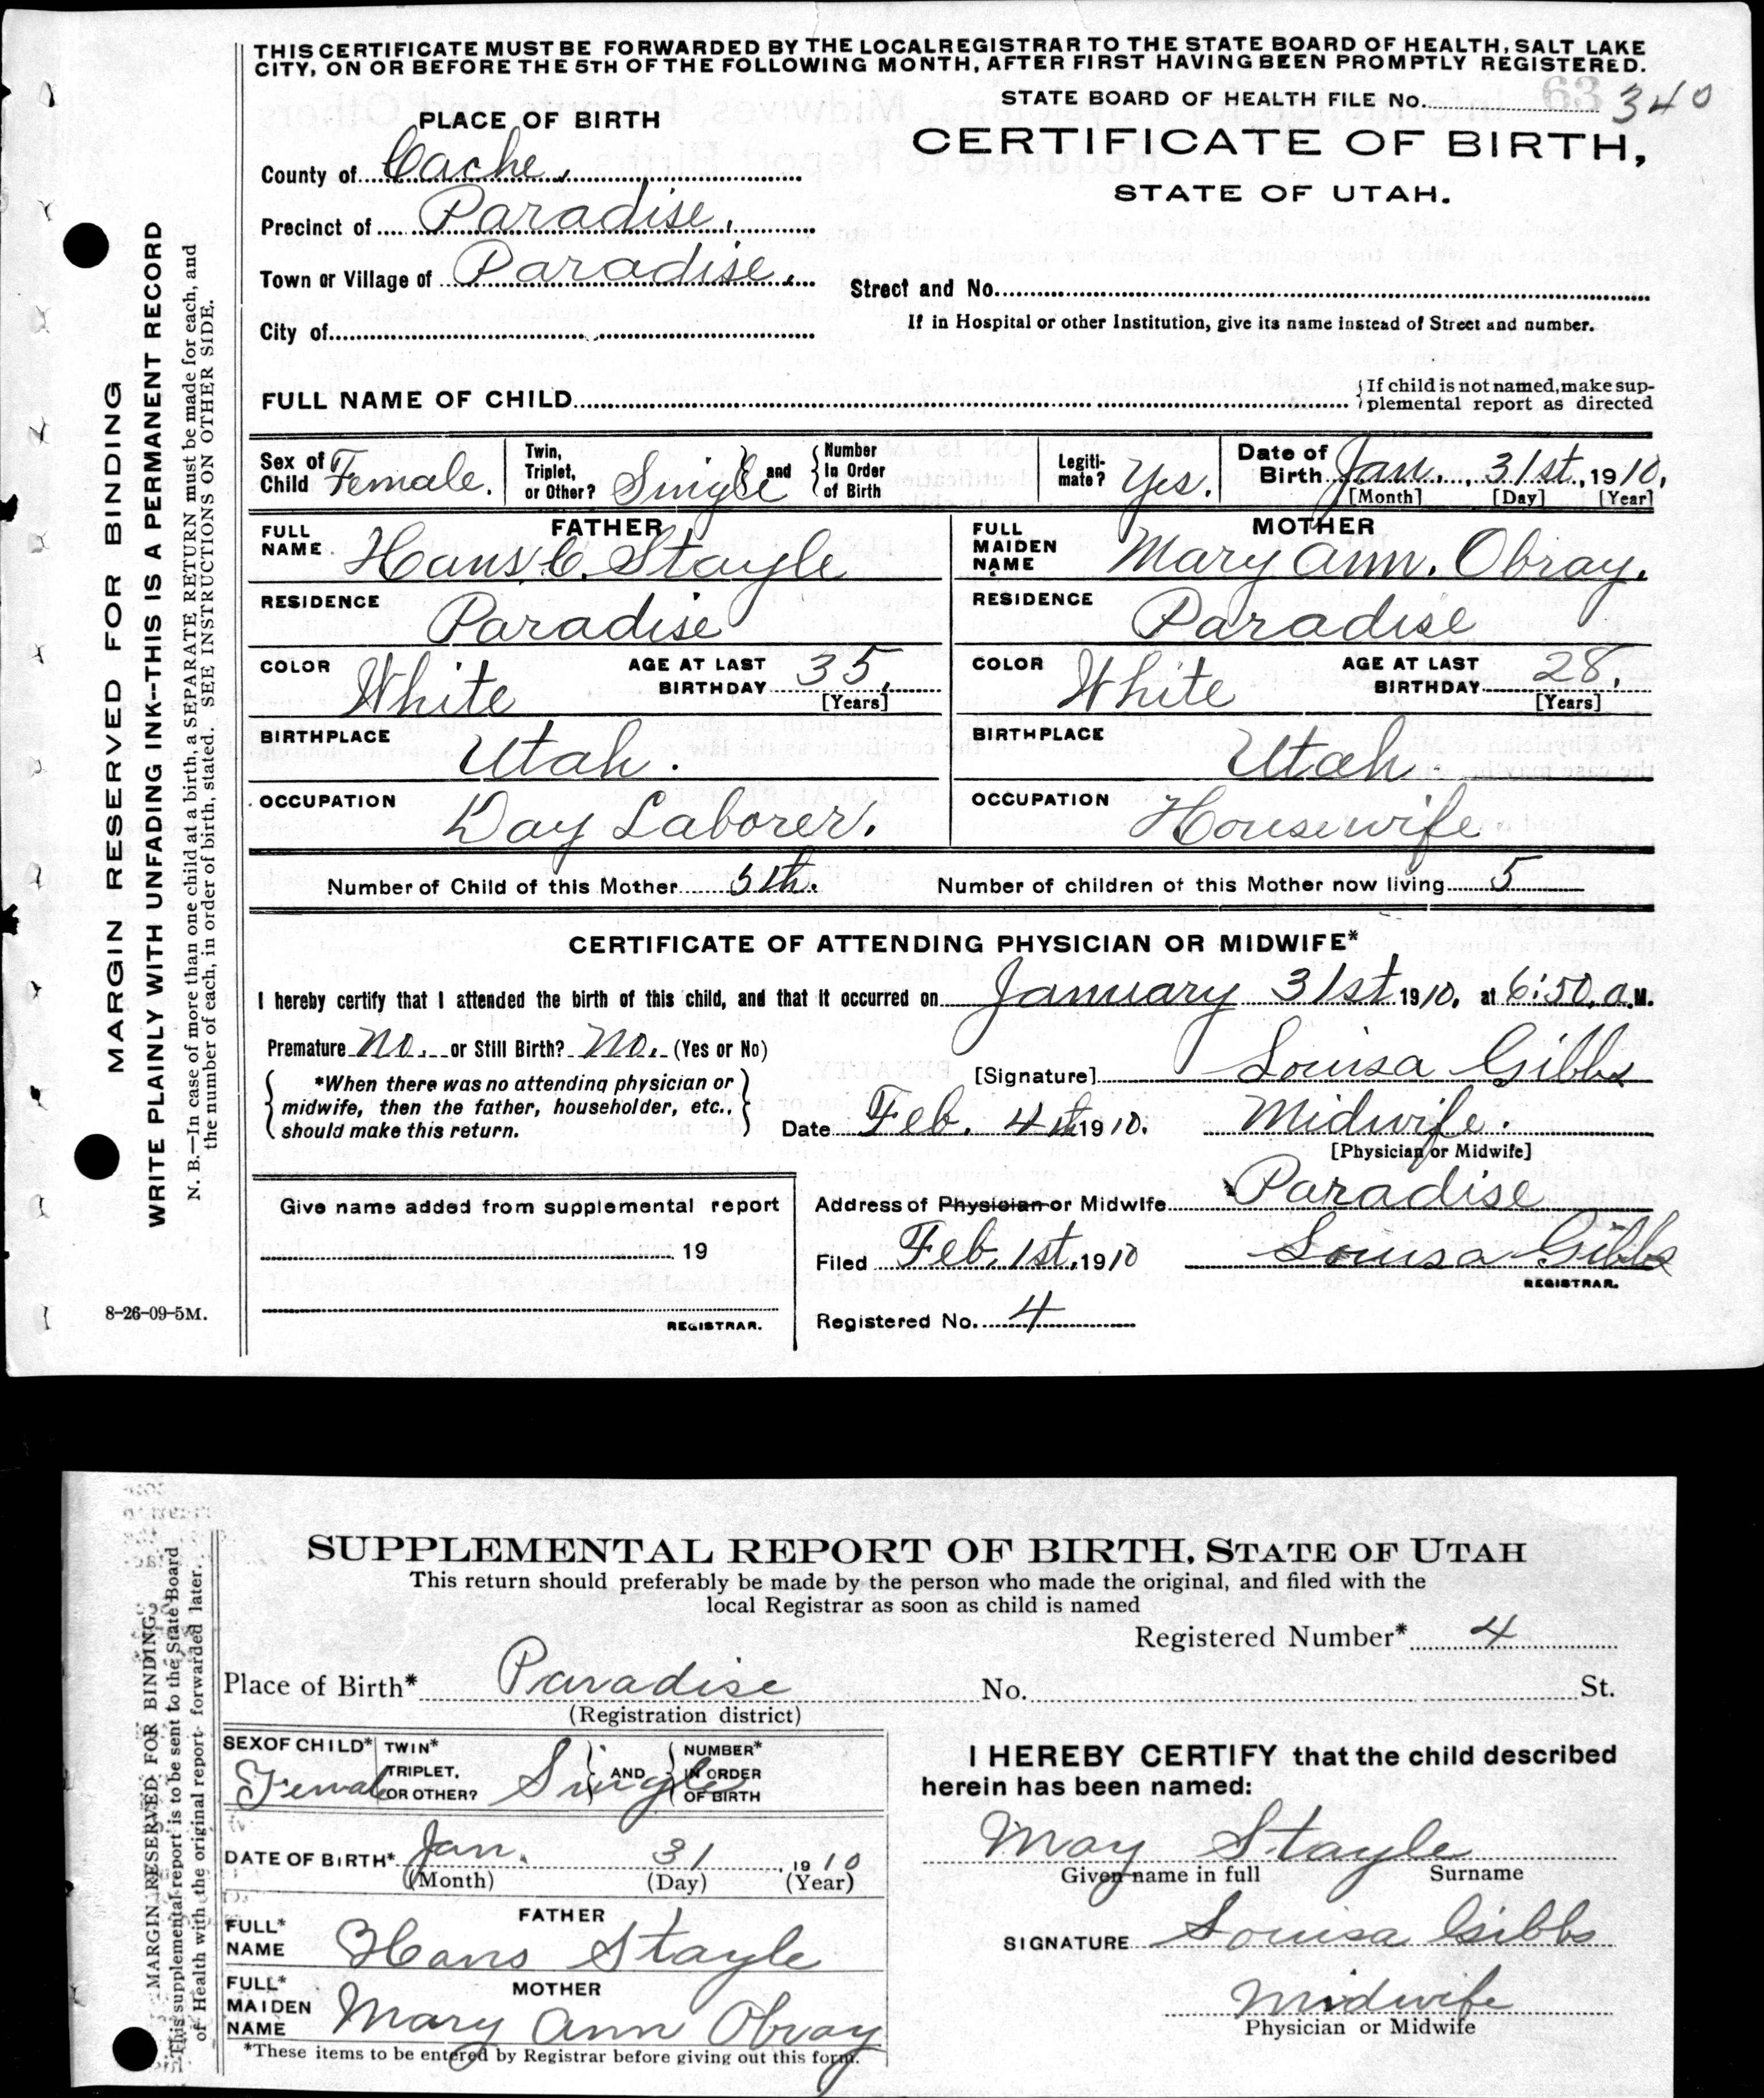 THIS CERTIFICATE MUST BE FORWARDED BY THE LOCAL REGISTRAR TO THE STATE BOARD OF HEALTH, SALT LAKE
CITY, ON OR BEFORE THE 5TH OF THE FOLLOWING MONTH, AFTER FIRST HAVING BEEN PROMPTLY REGISTERED.
STATE BOARD OF HEALTH FILE No. 63 340
PLACE OF BIRTH
CERTIFICATE OF BIRTH,
STATE OF UTAH.
County of Cache.
Precinct of Paradise.
Town or Village of Paradise.
Street and No.
City of
If in Hospital or other Institution, give its name instead of Street and number.
FULL NAME OF CHILD
If child is not named, make sup-
plemental report as directed
Sex of Child Female.
Twin, Triplet, or Other? Single and Number In Order of Birth
Legiti-mate? Yes.
Date of Birth Jan. 31st, 1910,
[Month] [Day] [Year]
FATHER
FULL NAME Hans C. Stayle
MOTHER
FULL MAIDEN NAME Mary Ann. Obray.
RESIDENCE Paradise
RESIDENCE Paradise
COLOR White AGE AT LAST BIRTHDAY 35. [Years]
COLOR White AGE AT LAST BIRTHDAY 28. [Years]
BIRTHPLACE Utah.
BIRTHPLACE Utah.
OCCUPATION Day Laborer.
OCCUPATION Housewife.
Number of Child of this Mother 5th. Number of children of this Mother now living 5
CERTIFICATE OF ATTENDING PHYSICIAN OR MIDWIFE*
I hereby certify that I attended the birth of this child, and that it occurred on January 31st 1910, at 6:50, a.M.
Premature No. or Still Birth? No. (Yes or No)
*When there was no attending physician or
midwife, then the father, householder, etc.,
should make this return.
[Signature] Louisa Gibbs
Date Feb. 4th 1910. Midwife.
[Physician or Midwife]
Address of Physician or Midwife Paradise
Give name added from supplemental report
19
REGISTRAR.
Filed Feb. 1st, 1910 Louisa Gibbs
REGISTRAR.
Registered No. 4
MARGIN RESERVED FOR BINDING
WRITE PLAINLY WITH UNFADING INK--THIS IS A PERMANENT RECORD
N. B.—In case of more than one child at a birth, a SEPARATE RETURN must be made for each, and
the number of each, in order of birth, stated. SEE INSTRUCTIONS ON OTHER SIDE.
8-26-09-5M.
SUPPLEMENTAL REPORT OF BIRTH, STATE OF UTAH
This return should preferably be made by the person who made the original, and filed with the
local Registrar as soon as child is named
Registered Number* 4
Place of Birth* Paradise No. St.
(Registration district)
SEX OF CHILD* Female
TWIN* TRIPLET, OR OTHER? Single AND NUMBER* IN ORDER OF BIRTH
DATE OF BIRTH* Jan. 31, 1910
(Month) (Day) (Year)
FATHER
FULL* NAME Hans Stayle
MOTHER
FULL* MAIDEN NAME Mary Ann Obray
*These items to be entered by Registrar before giving out this form.
I HEREBY CERTIFY that the child described
herein has been named:
May Stayle
Given name in full Surname
SIGNATURE Louisa Gibbs
Midwife
Physician or Midwife
MARGIN RESERVED FOR BINDING
This supplemental report is to be sent to the State Board
of Health with the original report forwarded later.